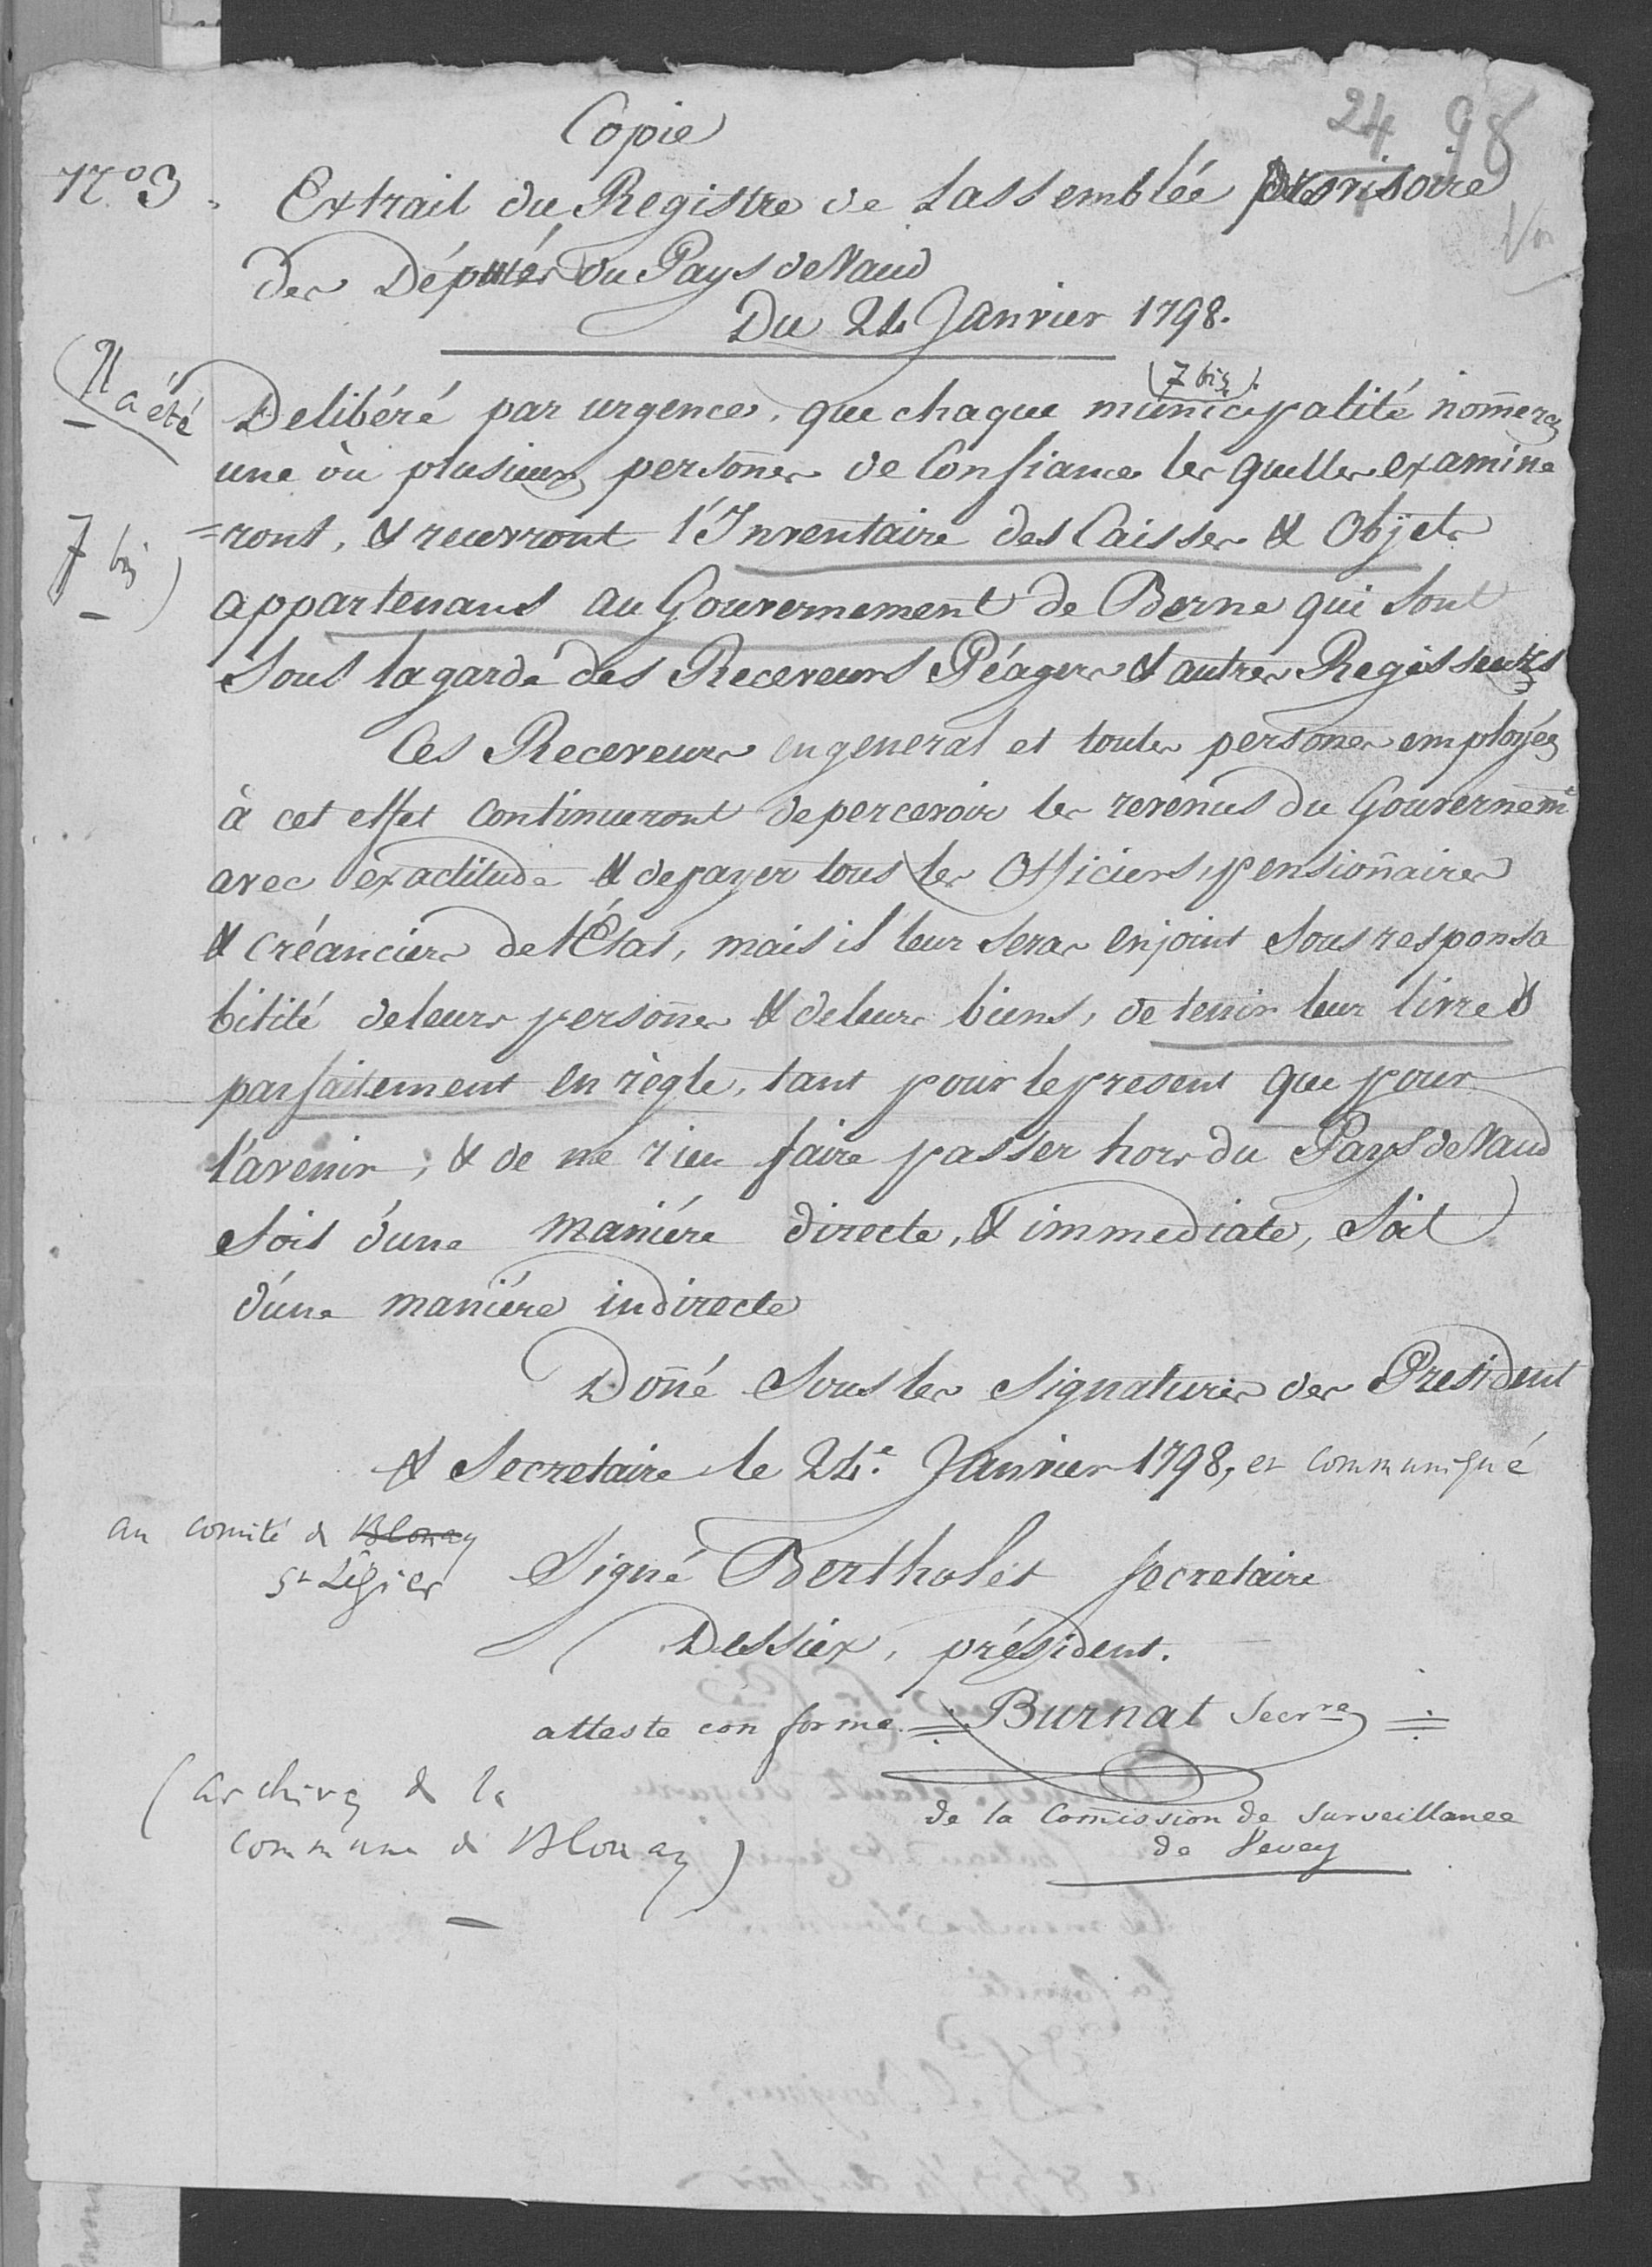 Copie
24 98
N.º 3.
Extrait du Registre de Lassemblée provisoire
des Députés du Pays de Vaud
Du 24 Janvier 1798.
(Il a été
(7 bis).
Delibéré par urgence, que chaque municipalité nom̃era
une ou plusieurs person̄es de Confiance les quelles examine
=ront, & recevront l'Inventaire des Caisses & Objets
7 bis)
appartenans au Gouvernement de Berne qui sont
sous la garde des Receveurs Péagers & autres Regisseurs
Ces Receveurs en general et toutes person̄es employées
à cet effet continueront de percevoir les revenus du Gouvernem̄t
avec exactitude & de payer tous les Officiers, pension̄aires
& créanciers de l'État, mais il leur sera enjoint sous responsa
bilité de leurs person̄es & de leurs biens, de tenir leur livres
parfaitement en règle, tant pour le present que pour
l'avenir; & de ne rien faire passer hors du Pays de Vaud
soit d'une maniére directe, & immediate, Soit
d'une maniére indirecte
Don̄é sous les signatures des President
& Secretaire le 24.e Janvier 1798, et communiqué
au comité de Blonay
St Légier
Signé Bertholet secretaire
Dessiex, président.
atteste conforme Burnat Secrre
(archives de la
commune de Blonay)
de la Com̄ission de Surveillance
de Vevey